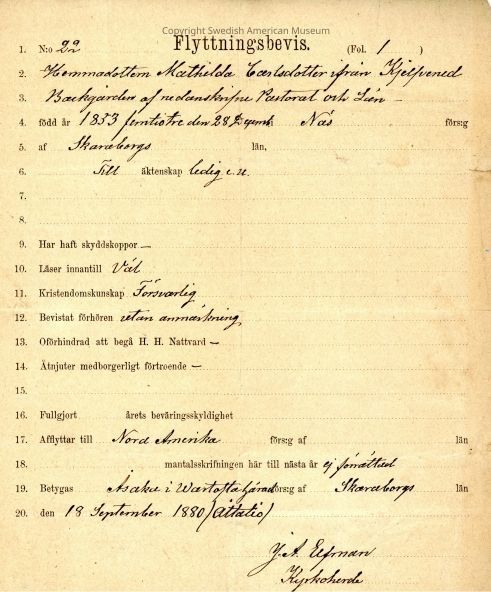 Copyright Swedish American Museum
Flyttningsbevis. (Fol. 1 )
1. N:o 22
2. Hemmadottern Mathilda Carlsdotter ifrån Kjelfvened
3. Backgården af nedanskrifne Pastorat och Län
4. född år 1853 femtiotre den 28 Decemb. Näs förs:g
5. af Skaraborgs län,
6. Till äktenskap ledig
7.
8.
9. Har haft skyddskoppor —
10. Läser innantill Väl
11. Kristendomskunskap Försvarlig
12. Bevistat förhören utan anmärkning
13. Oförhindrad att begå H. H. Nattvard —
14. Åtnjuter medborgerligt förtroende —
15.
16. Fullgjort årets beväringsskyldighet
17. Afflyttar till Nord Amerika förs:g af län
18. mantalsskrifningen här till nästa år ej förrättad
19. Betygas Åsaka i Wartofta härad förs:g af Skaraborgs län
20. den 18 September 1880 (åttatio)
J. A.
Kyrkoherde